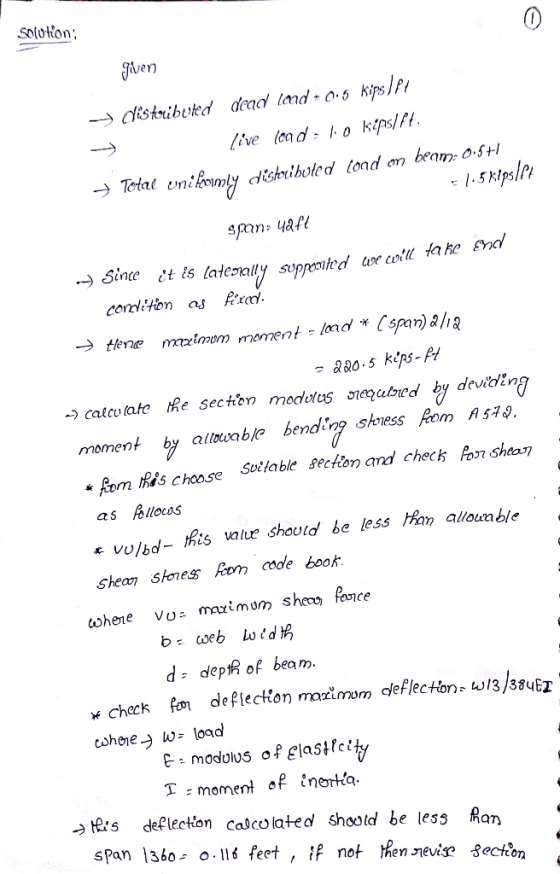 ①
Solution:
given
→ distributed dead load = 0.5 kips/ft
→ live load = 1.0 kips/ft.
→ Total uniformly distributed load on beam = 0.5+1
= 1.5 kips/ft
span = 42ft
→ Since it is laterally supported we will take end
condition as fixed.
→ Hence maximum moment = load * (span)2/12
= 220.5 kips-ft
→ calculate the section modulus required by deviding
moment by allowable bending stress from A572.
* from this choose suitable section and check for shear
as follows
* Vu/bd - this value should be less than allowable
shear stress from code book.
where Vu = maximum shear force
b = web width
d = depth of beam.
* check for deflection maximum deflection = wl3/384EI
where → W = load
E = modulus of Elasticity
I = moment of inertia.
→ this deflection calculated should be less than
span /360 = 0.116 feet, if not then revise section